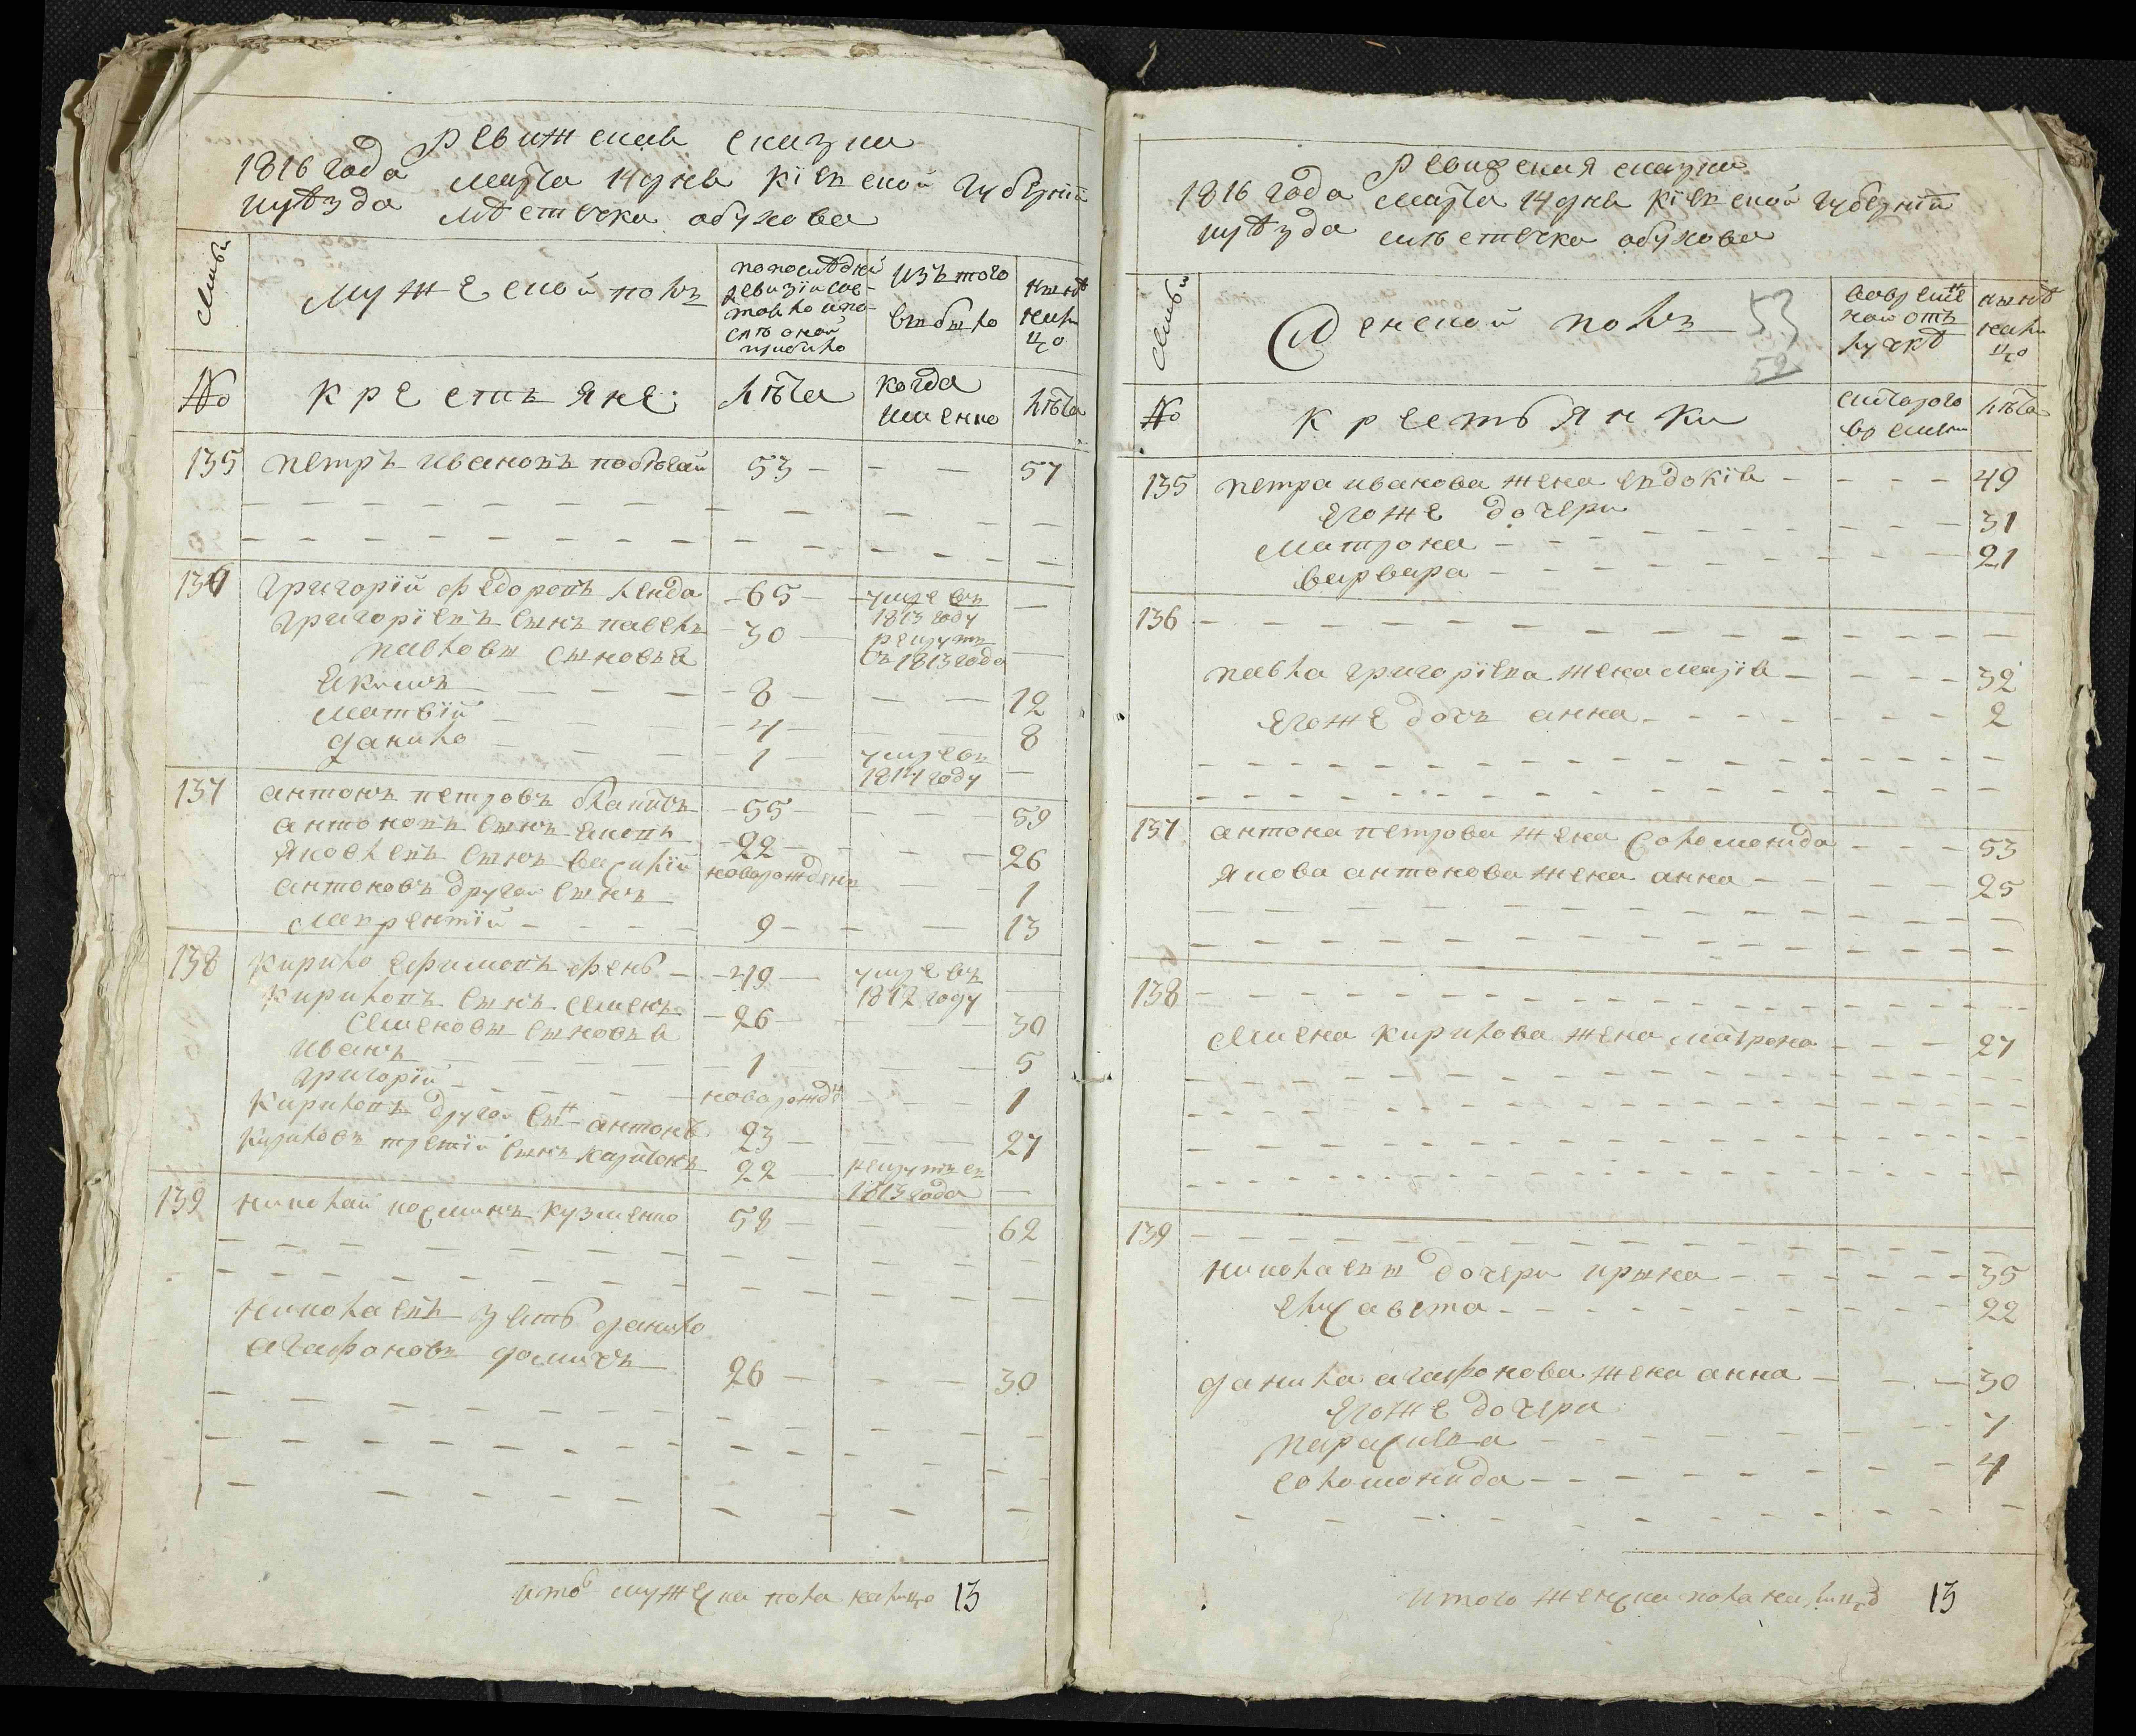 Ревижская сказка
1816 года марта 14 дня Кіевской губерніи
уѣзда мѣстечка обухова
семьи
мужеской полъ
по последней ревизіи состояло и после оной прибыло
изъ того выбыло
ныне на лицо
№
крестьяне
лѣта
когда именно
лѣта
135 петръ ивановъ побігай 53 57
136 григорій федоровъ ленда 65 умре въ 1813 году
григоріевъ сынъ павелъ 30 рекрутъ съ 1813 года
павловы сыновья
якимъ 8 12
матвій 4 8
данило 1 умре въ 1814 году
137 антонъ петровъ 55 59
антоновъ сынъ яковъ 22 26
яковлевъ сынъ василій новорожденъ 1
антоновъ другой сынъ
лаврентій 9 13
138 кирило ефимовъ фень 49 умре въ 1812 году
кириловъ сынъ семенъ 26 30
семеновы сыновья
иванъ 1 5
григорій новорожд 1
кириловъ другой сынъ антонъ 23 27
кириловъ третій сынъ харитонъ 22 рекрутъ въ 1813 года
139 николай косминъ кузменко 58 62
николаевъ зять данило
агафоновъ 26 30
итого мужеска пола налицо 13
Ревижския сказки
1816 года марта 14 дня Кіевской губерніи
уѣзда мѣстечка обухова
семьи
Женской полъ
53
52
во временной отлучкѣ
ныне на лицо
№
крестьянки
с которого времени
лѣта
135 петра иванова жена евдокія 49
его же дочери
матрона 31
варвара 21
136
павла григоріева жена марія 32
его же дочь анна 2
137 антона петрова жена соломонида 53
якова антонова жена анна 25
138
семена кирилова жена матрона 27
139
николаевы дочери ирына 35
елисавета 22
данила агафонова жена анна 30
его же дочери
парасиева 7
соломонида 4
итого женска пола на лицо 13